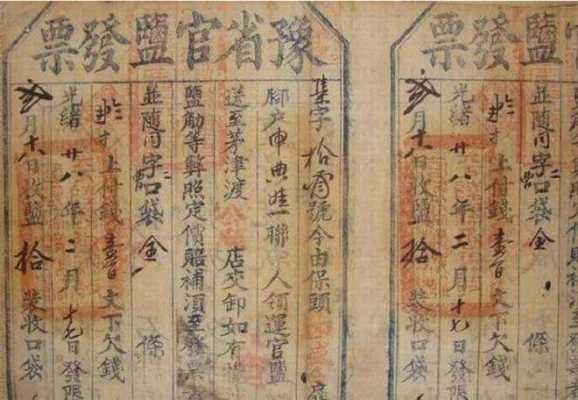 鹽發票
並隨同字口袋全 條
上付錢壹百文下欠錢
光緒廿八年二月十七日發限
月十八日收鹽拾 裝收口袋
豫省官鹽發票
集字拾 號今由保頭
脚户申典娃一聯 人領運官鹽
送至茅津渡 店交卸如有
鹽觔等弊照定價賠補須至發票
並隨同字口袋全 條
上付錢壹百文下欠錢
光緒廿八年二月十七日發限
月十八日收鹽拾 裝收口袋